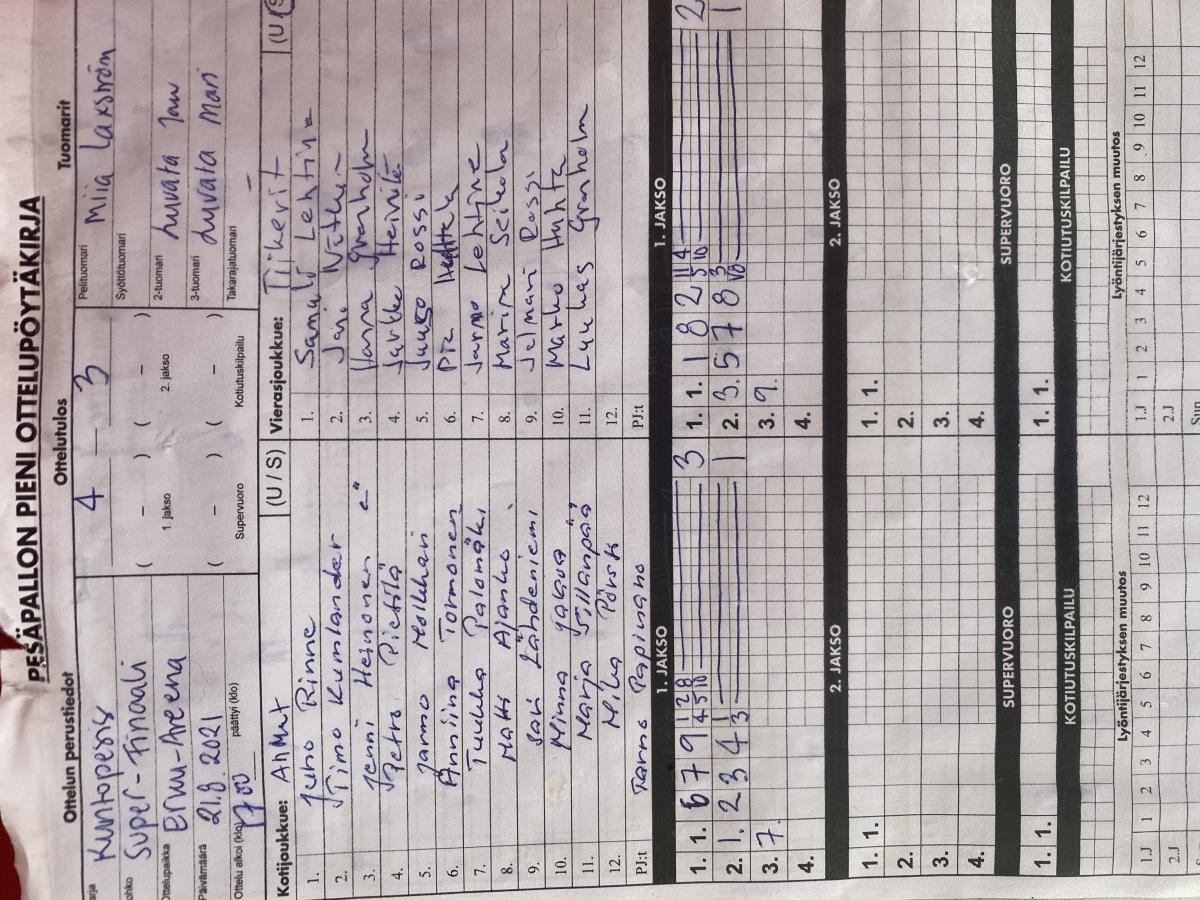 PESÄPALLON PIENI OTTELUPÖYTÄKIRJA
Ottelun perustiedot
Kuntopesis
Super-Finaali
Ottelupaikka
Päivämäärä 21.8.2021
Ottelu alkoi (klo) 1700 päättyi (klo)
Ottelutulos
4 — 3
( – ) ( – )
1. jakso 2. jakso
( – ) ( – )
Supervuoro Kotiutuskilpailu
Tuomarit
Pelituomari Miia Laxström
Syöttötuomari
2-tuomari Luvata
3-tuomari Luvata Mari
Takarajatuomari –
Kotijoukkue: Ahmat (U / S)
1. Juho Rinne
2. Timo Kumlander
3. Jenni Heinonen "c"
4. Petro Pietilä
5. Jarmo
6. Anniina Tormonen
7. Tuukka Palomäki
8. Matti Ajanko
9. Sari Lähdeniemi
10. Minna
11. Marja Sillanpää
12. Mika Pörsti
PJ:t
Vierasjoukkue: Tiikerit (U
1. Lehtine
2. Jani
3. Hanna Granholm
4. Jarkko Heinilä
5. Juuso Rossi
6. Pia
7. Jarmo Lehtine
8. Seikola
9. Jelmari Rossi
10. Marko Huhta
11. Luukas Granholm
12.
PJ:t
1. JAKSO
1. 1. 6 7 9 1 2 8 3
4 5 10
2. 1. 2 3 4 1 1
3
3. 7.
4.
1. JAKSO
1. 1. 1 8 2 11 4 2
5 10
2. 3. 5 7 8 3 1
10
3. 9.
4.
2. JAKSO
1. 1.
2.
3.
4.
2. JAKSO
1. 1.
2.
3.
4.
SUPERVUORO
1. 1.
SUPERVUORO
1. 1.
KOTIUTUSKILPAILU
KOTIUTUSKILPAILU
Lyöntijärjestyksen muutos
1.J 1 2 3 4 5 6 7 8 9 10 11 12
2.J
Lyöntijärjestyksen muutos
1.J 1 2 3 4 5 6 7 8 9 10 11 12
2.J